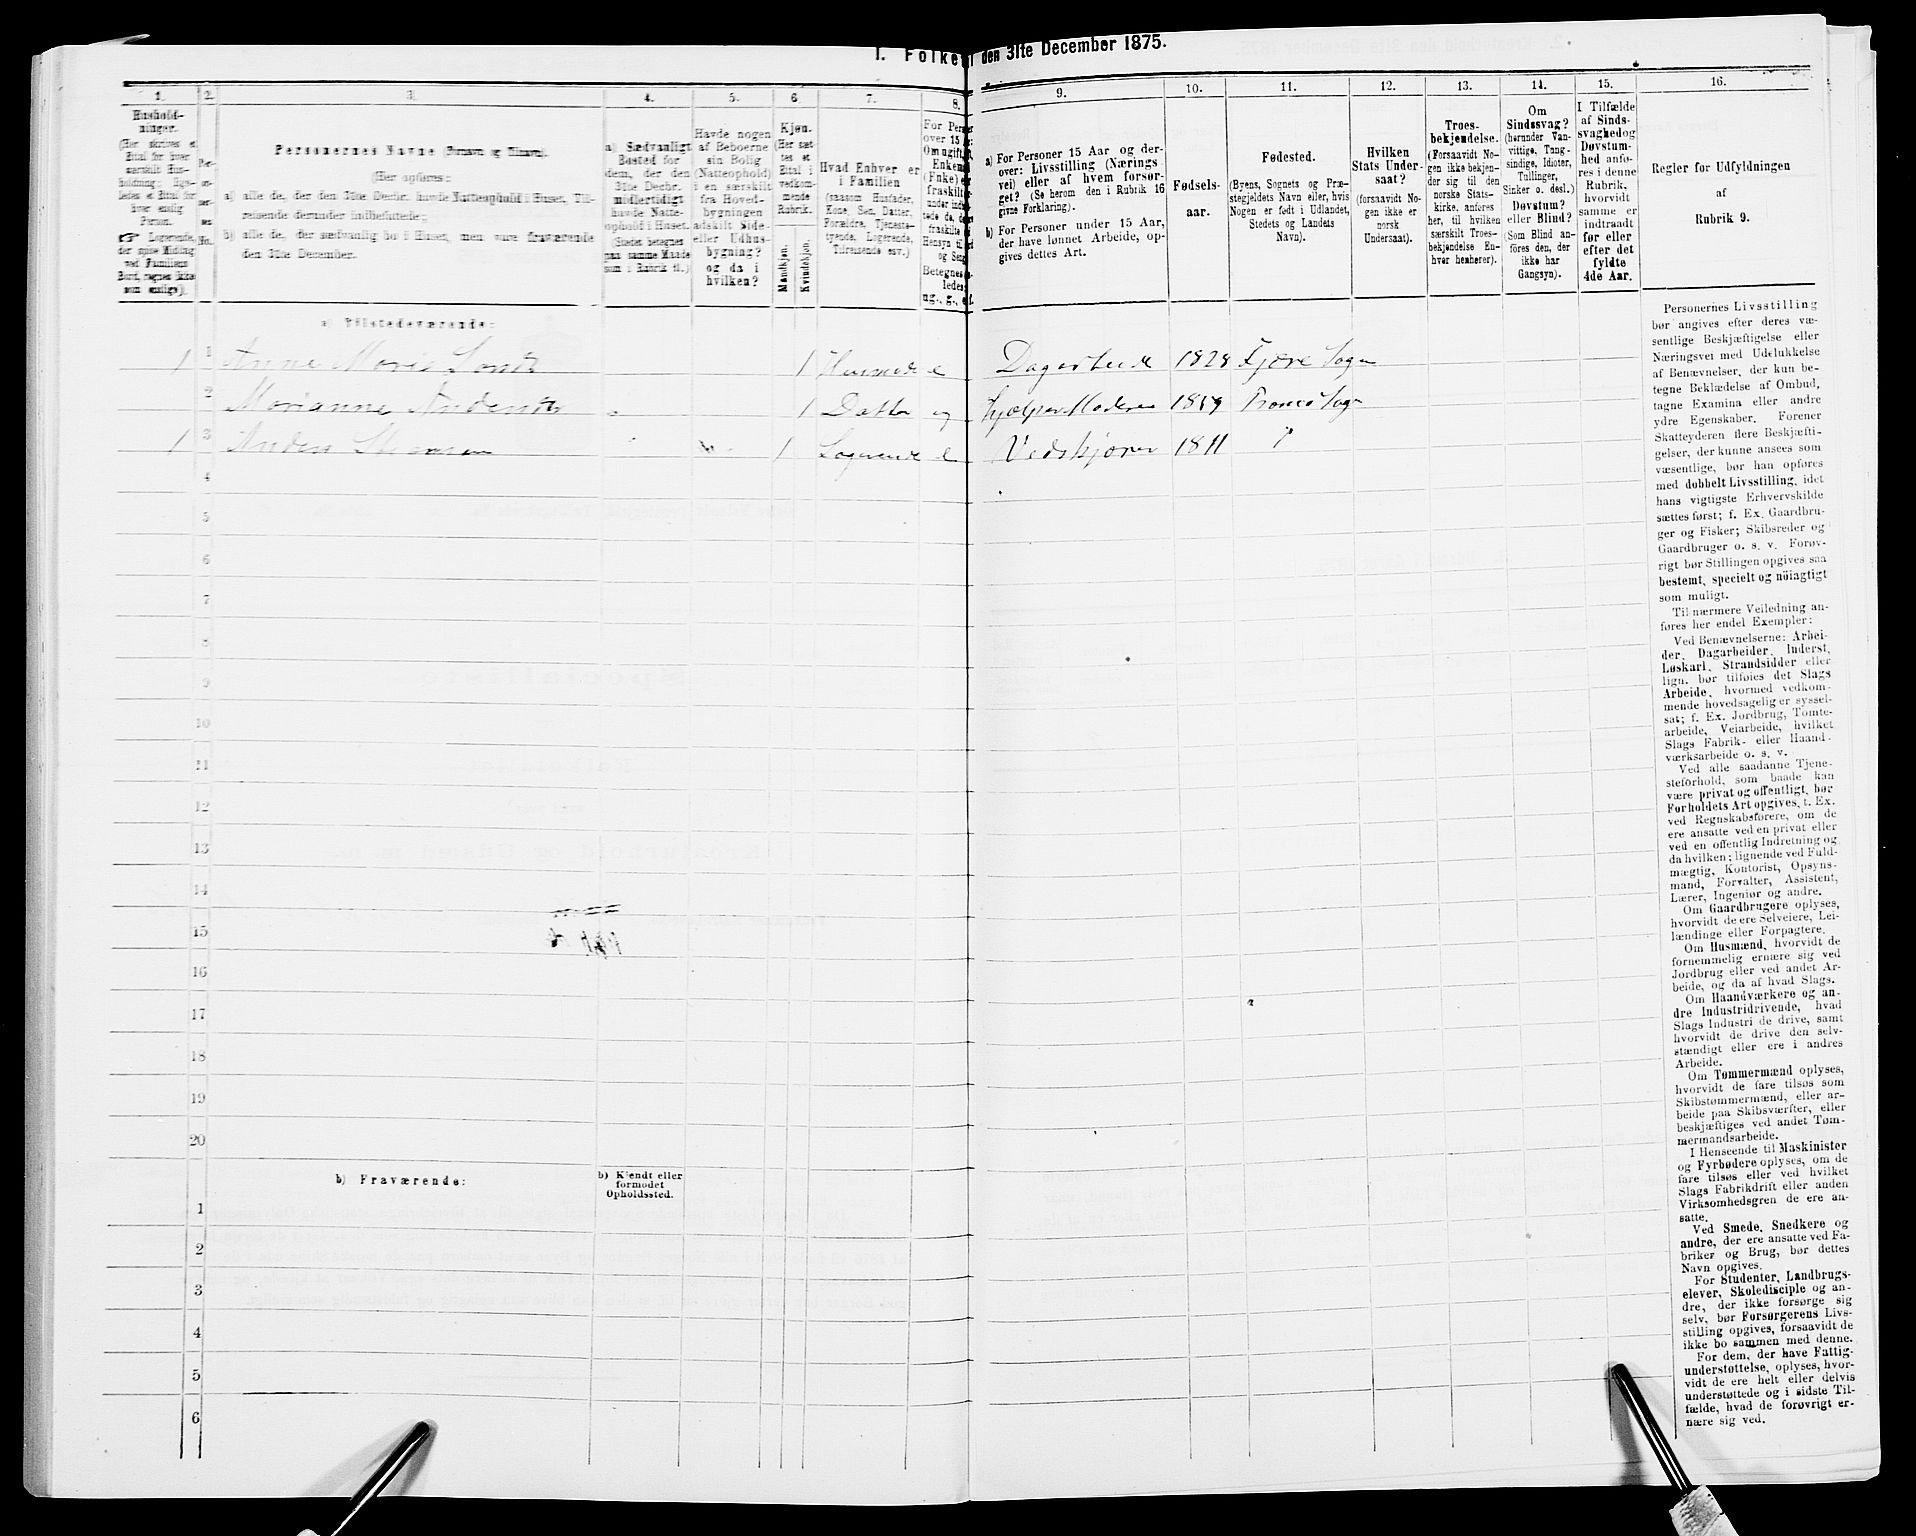 I. Folke
den 31te December 1875.
1.
Hushold-
ninger.
(Her skrives et
Ettal for hver
særskilt Hus-
holdning; lige-
ledes et Ettal for
hver enslig
Person.
☞ Logerende,
der spise Middag
ved Familiens
Bord, regnes ikke
som enslige).
2.
Per-
so-
ner-
nes
No.
3.
Personernes Navne (Fornavn og Tilnavn).
(Her opføres:
a) alle de, der den 31te Decbr. havde Natteophold i Huset, Til-
reisende derunder indbefattede;
b) alle de, der sædvanlig bo i Huset, men vare fraværende
den 31te December.
4.
a) Sædvanligt
Bosted for
dem, der den
31te Decbr.
midlertidigt
havde Natte-
ophold i Huset.
(Stedet betegnes
paa samme Maade
som i Rubrik 11.)
5.
Havde nogen
af Beboerne
sin Bolig
(Natteophold)
i en særskilt
fra Hoved-
bygningen
adskilt Side-
eller Udhus-
bygning?
og da i
hvilken?
6.
Kjøn.
(Her sæt-
tes et
Ettal i
vedkom-
mende
Rubrik.
Mandkjøn.
Kvindekjøn.
7.
Hvad Enhver er
i Familien
(saasom Husfader,
Kone, Søn, Datter,
Forældre, Tjeneste-
tyende, Logerende,
Tilreisende osv.)
8.
For Pers
over 15
Om ugift,
Enkem
(Enke) e
fraskilt
under indb
tede de, d
fraskilte
Hensyn til
og Seng
Betegnes
ledes:
ug., g., e, f.
9.
a) For Personer 15 Aar og der-
over: Livsstilling (Nærings-
vei) eller af hvem forsør-
get? (Se herom den i Rubrik 16
givne Forklaring).
b) For Personer under 15 Aar,
der have lønnet Arbeide, op-
gives dettes Art.
10.
Fødsels-
aar.
11.
Fødested.
(Byens, Sognets og Præ-
stegjeldets Navn eller, hvis
Nogen er født i Udlandet,
Stedets og Landets
Navn).
12.
Hvilken
Stats Under-
saat?
(forsaavidt No-
gen ikke er
norsk
Undersaat).
13.
Troes-
bekjendelse.
(Forsaavidt No-
gen ikke bekjen-
der sig til den
norske Stats-
kirke, anføres
her, til hvilken
særskilt Troes-
bekjendelse En-
hver henhører).
14.
Om
Sindssvag?
(herunder Van-
vittige, Tung-
sindige, Idioter,
Tullinger,
Sinker o. desl.)
Døvstum?
eller Blind?
(Som Blind an-
føres den, der
ikke har
Gangsyn).
15.
I Tilfælde
af Sinds-
svaghed og
Døvstum-
hed anfø-
res i denne
Rubrik,
hvorvidt
samme er
indtraadt
før eller
efter det
fyldte
4de Aar.
16.
Regler for Udfyldningen
af
Rubrik 9.
a) Tilstedeværende:
1 1 Anne Marie 1 e Dagarbeide 1828 Fjære Sogn
2 Marianne 1 Datter ug hjælper Moderen 1859 Tromø Sogn
1 3 Anders 1 Logerende e Vedskjærer 1811 "
4
5
6
7
8
9
10
11
12
13
14
15
16
17
18
19
20
b) Fraværende:
b) Kjendt eller
formodet
Opholdssted.
1
2
3
4
5
6
Personernes Livsstilling
bør angives efter deres væ-
sentlige Beskjæftigelse eller
Næringsvei med Udelukkelse
af Benævnelser, der kun be-
tegne Beklædelse af Ombud,
tagne Examina eller andre
ydre Egenskaber. Forener
Skatteyderen flere Beskjæfti-
gelser, der kunne ansees som
væsentlige, bør han opføres
med dobbelt Livsstilling, idet
hans vigtigste Erhvervskilde
sættes først; f. Ex. Gaardbru-
ger og Fisker; Skibsreder og
Gaardbruger o. s. v. Forøv-
rigt bør Stillingen opgives saa
bestemt, specielt og nöiagtigt
som muligt.
Til nærmere Veiledning an-
føres her endel Exempler:
Ved Benævnelserne: Arbei-
der, Dagarbeider, Inderst,
Løskarl, Strandsidder eller
lign. bør tilføies det Slags
Arbeide, hvormed vedkom-
mende hovedsagelig er syssel-
sat; f. Ex. Jordbrug, Tomte-
arbeide, Veiarbeide, hvilket
Slags Fabrik- eller Haand-
værksarbeide o. s. v.
Ved alle saadanne Tjene-
steforhold, som baade kan
være privat og offentligt, bør
Forholdets Art opgives, f. Ex.
ved Regnskabsførere, om de
ere ansatte ved en privat eller
ved en offentlig Indretning og
da hvilken; lignende ved Fuld-
mægtig, Kontorist, Opsyns-
mand, Forvalter, Assistent,
Lærer, Ingeniør og andre.
Om Gaardbrugere oplyses,
hvorvidt de ere Selveiere, Lei-
lændinge eller Forpagtere.
Om Husmænd, hvorvidt de
fornemmelig ernære sig ved
Jordbrug eller ved andet Ar-
beide, og da af hvad Slags.
Om Haandværkere og an-
dre Industridrivende, hvad
Slags Industri de drive, samt
hvorvidt de drive den selv-
stændigt eller ere i andres
Arbeide.
Om Tømmermænd oplyses,
hvorvidt de fare tilsøs som
Skibstømmermænd, eller ar-
beide paa Skibsværfter, eller
beskjæftiges ved andet Tøm-
mermandsarbeide.
I Henseende til Maskinister
og Fyrbødere oplyses, om de
fare tilsøs eller ved hvilket
Slags Fabrikdrift eller anden
Virksomhedsgren de ere an-
satte.
Ved Smede, Snedkere og
andre, der ere ansatte ved Fa-
briker og Brug, bør dettes
Navn opgives.
For Studenter, Landbrugs-
elever, Skoledisciple og an-
dre, der ikke forsørge sig
selv, bør Forsørgerens Livs-
stilling opgives, forsaavidt de
ikke bo sammen med denne.
For dem, der have Fattig-
understøttelse, oplyses, hvor-
vidt de ere helt eller delvis
understøttede og i sidste Til-
fælde, hvad de forøvrigt er-
nære sig ved.